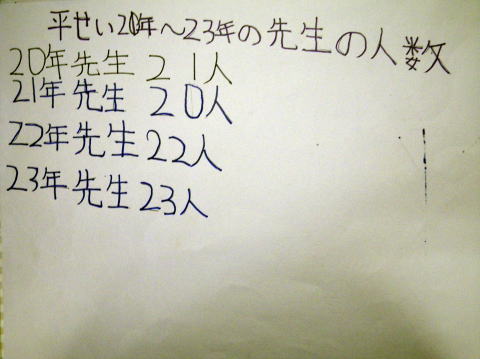 平せい20年～23年の先生の人数
20年先生 21人
21年先生 20人
22年先生 22人
23年先生 23人